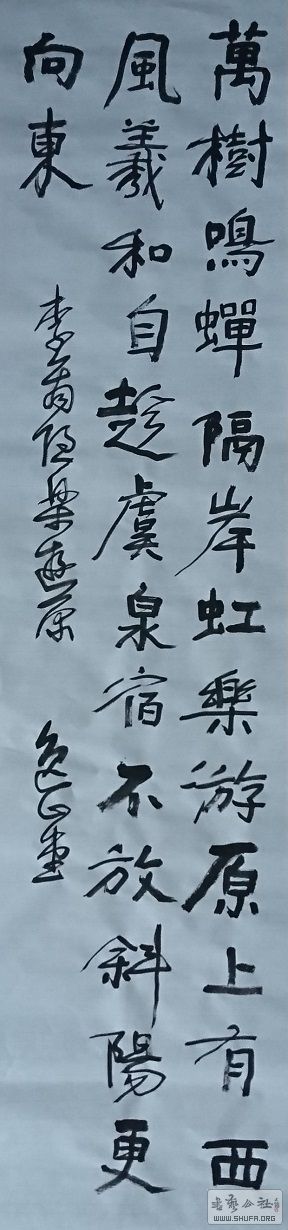 萬樹鳴蟬隔岸虹樂游原上有西
風羲和自趁虞泉宿不放斜陽更
向東
李商隱樂遊原
書藝公社
WWW.SHUFA.ORG